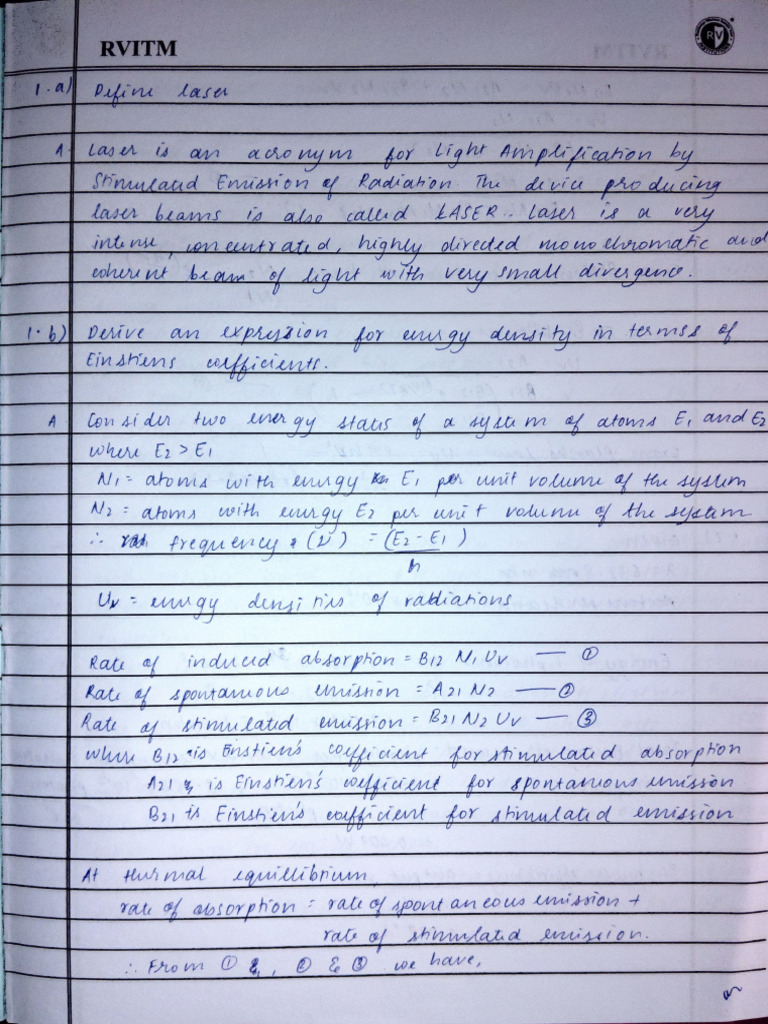 RVITM
RV
1.a) Define laser
A. Laser is an acronym for Light Amplification by
Stimulated Emission of Radiation. The device producing
laser beams is also called LASER. Laser is a very
intense, concentrated, highly directed monochromatic and
coherent beam of light with very small divergence.
1.b) Derive an expression for energy density in termss of
Einstiens coefficients.
A Consider two energy states of a system of atoms E1 and E2
where E2 > E1
N1 = atoms with energy E1 per unit volume of the system
N2 = atoms with energy E2 per unit volume of the system
∴ frequency (ν) = (E2 - E1)
h
Uν = energy densities of radiations
Rate of induced absorption = B12 N1 Uν — ①
Rate of spontaneous emission = A21 N2 — ②
Rate of stimulated emission = B21 N2 Uν — ③
where B12 is Einstien's coefficient for stimulated absorption
A21 is Einstien's coefficient for spontaneous emission
B21 is Einstien's coefficient for stimulated emission
At thermal equillibrium,
rate of absorption = rate of spontaneous emission +
rate of stimulated emission.
∴ From ① , ② & ③ we have,